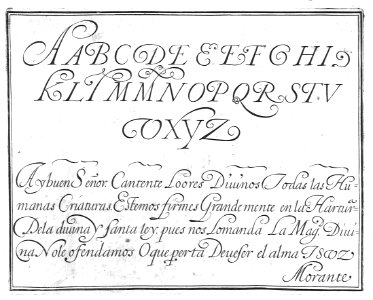 A A B C D E E E F G H I J
K L Y M M N O P Q R S T V
V X Y Z
Ay buen Señor. Cantente Loores Diuinos Todas las Hu-
manas Criaturas. Estemos firmes Grandemente en la
De la diuina y santa ley: pues nos lo manda La Mag. Diui-
na No le ofendamos O que perta De ueser el alma
Morante